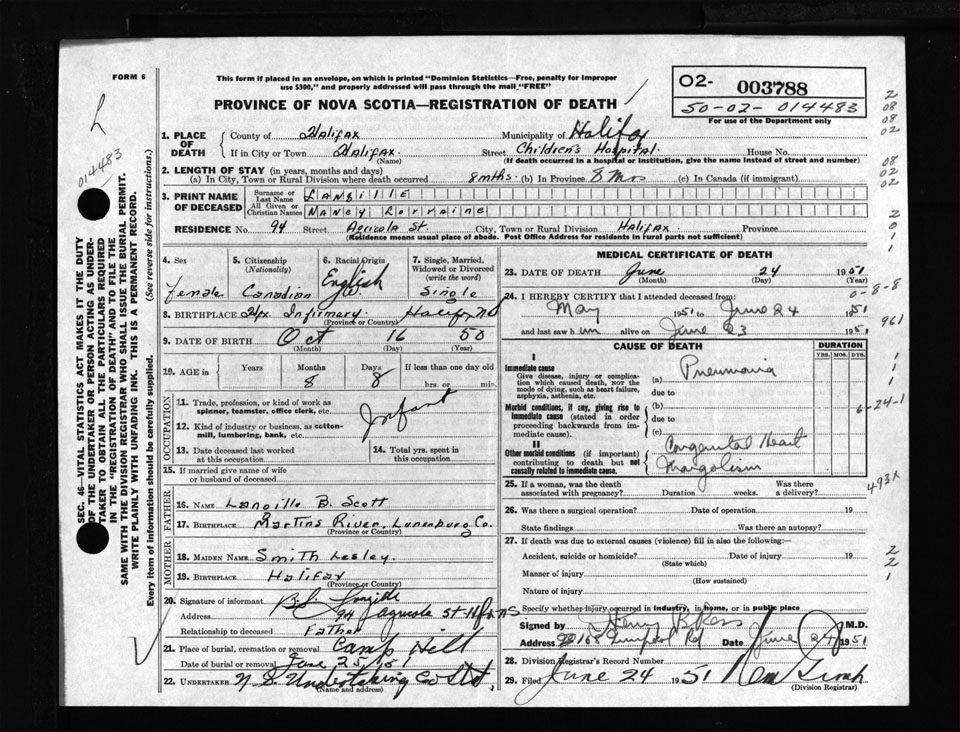 FORM 6
This form if placed in an envelope, on which is printed "Dominion Statistics—Free, penalty for improper
use $300," and properly addressed will pass through the mail "FREE"
PROVINCE OF NOVA SCOTIA—REGISTRATION OF DEATH
02- 003788
50-02-014483
For use of the Department only
014483
SEC. 46—VITAL STATISTICS ACT MAKES IT THE DUTY
OF THE UNDERTAKER OR PERSON ACTING AS UNDER-
TAKER TO OBTAIN ALL THE PARTICULARS REQUIRED
IN THE "REGISTRATION OF DEATH" AND TO FILE THE
SAME WITH THE DIVISION REGISTRAR WHO SHALL ISSUE THE BURIAL PERMIT.
WRITE PLAINLY WITH UNFADING INK. THIS IS A PERMANENT RECORD.
Every item of information should be carefully supplied. (See reverse side for instructions.)
1. PLACE OF DEATH
County of Halifax Municipality of Halifax
If in City or Town Halifax Street Children's Hospital. House No.
(Name) (If death occurred in a hospital or institution, give the name instead of street and number)
2. LENGTH OF STAY (in years, months and days)
(a) In City, Town or Rural Division where death occurred 8 mths. (b) In Province 8 Mos (c) In Canada (if immigrant)
3. PRINT NAME OF DECEASED
Surname or Last Name LANGILLE
All Given or Christian Names NANCY Lorraine
RESIDENCE No. 94 Street Agricola St. City, Town or Rural Division Halifax. Province
(Residence means usual place of abode. Post Office Address for residents in rural parts not sufficient)
4. Sex female
5. Citizenship (Nationality) Canadian
6. Racial Origin English
7. Single, Married, Widowed or Divorced (write the word) Single
8. BIRTHPLACE Hfx Infirmary. Halifax NS
(Province or Country)
9. DATE OF BIRTH Oct 16 50
(Month) (Day) (Year)
10. AGE in Years Months 8 Days 8 If less than one day old hrs. or min.
OCCUPATION
11. Trade, profession, or kind of work as spinner, teamster, office clerk, etc.
Infant
12. Kind of industry or business, as cotton-mill, lumbering, bank, etc.
13. Date deceased last worked at this occupation
14. Total yrs. spent in this occupation
15. If married give name of wife or husband of deceased
FATHER
16. Name Langille B. Scott
17. Birthplace Martins River, Lunenburg Co.
(Province or Country)
MOTHER
18. Maiden Name Smith Lesley.
19. Birthplace Halifax
(Province or Country)
20. Signature of informant B.S. Langille
Address 94 Agricola St. Hfx NS
Relationship to deceased Father
21. Place of burial, cremation or removal Camp Hill
Date of burial or removal June 25, 1951
22. Undertaker N S Undertaking Co Ltd,
(Name and address)
MEDICAL CERTIFICATE OF DEATH
23. DATE OF DEATH June 24 1951
(Month) (Day) (Year)
24. I HEREBY CERTIFY that I attended deceased from:
May 1951 to June 24 1951
and last saw h im alive on June 23 1951
CAUSE OF DEATH
DURATION
YRS. MOS. DYS.
I
Immediate cause
Give disease, injury or complication which caused death, NOT the mode of dying, such as heart failure, asphyxia, asthenia, etc.
(a) Pneumonia
due to
Morbid conditions, if any, giving rise to immediate cause (stated in order proceeding backwards from immediate cause).
(b)
due to
(c)
II
Other morbid conditions (if important) contributing to death but not causally related to immediate cause.
Congenital Heart
Mongolism
25. If a woman, was the death associated with pregnancy? Duration weeks. Was there a delivery?
26. Was there a surgical operation? Date of operation 19
State findings Was there an autopsy?
27. If death was due to external causes (violence) fill in also the following:—
Accident, suicide or homicide? Date of injury 19
(State which)
Manner of injury
(How sustained)
Nature of injury
Specify whether injury occurred in industry, in home, or in public place
Signed by Henry B Ross M.D.
Address Date June 24 1951
28. Division Registrar's Record Number
29. Filed June 24 1951
(Division Registrar)
2
08
08
02
08
02
02
2
0
1
0-8-8
961
1
1
1
6-24-1
493X
2
2
1